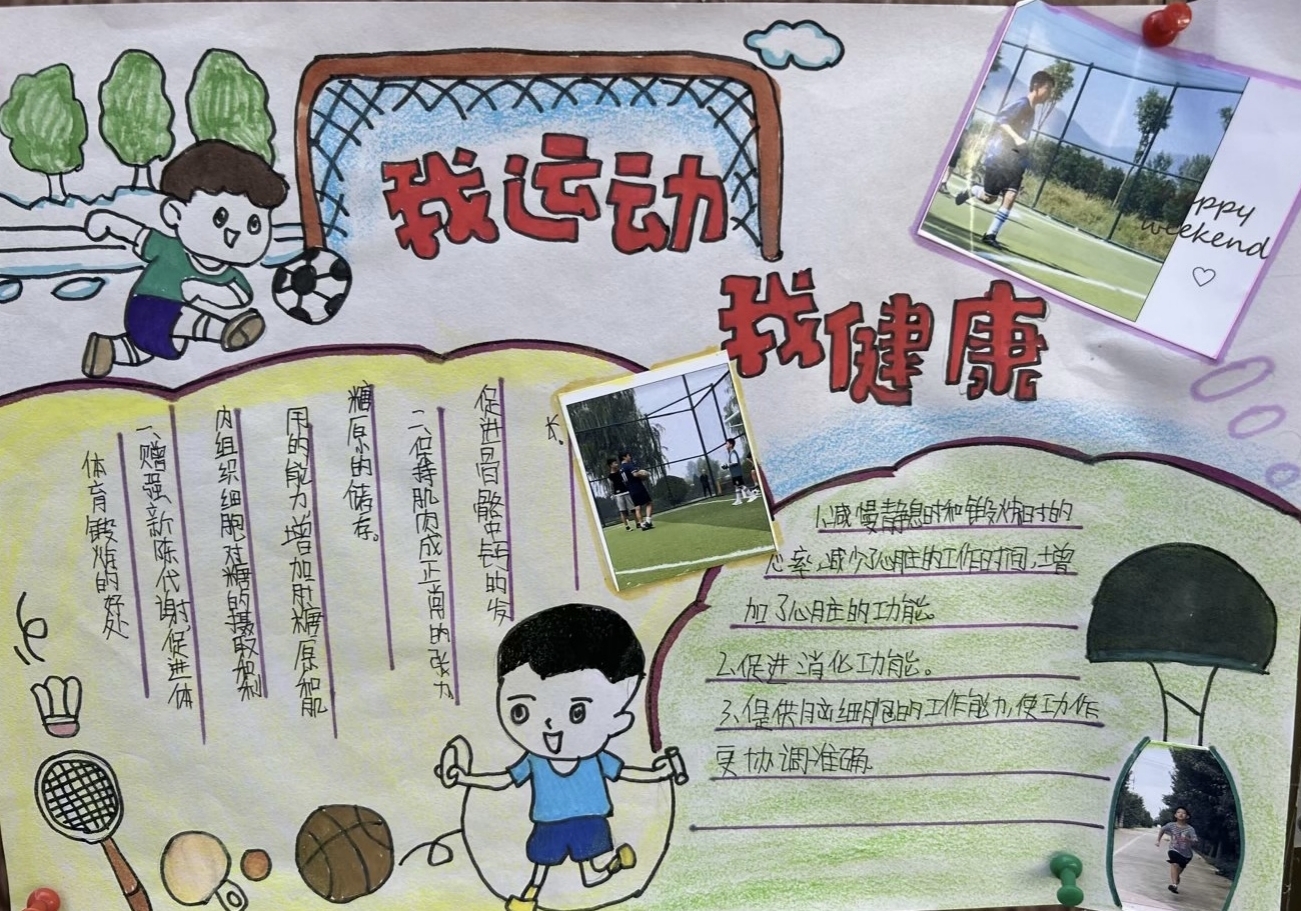 我运动
我健康
ppy
weekend
体育锻炼的好处
一、赠强新陈代谢,促进体
内组织细胞对糖的摄取和利
用的能力增加肝糖原和肌
糖原的储存。
二、保持肌肉成正常的张力
促进骨骼中钙的发
1.减慢静息时和锻炼时的
心率,减少了心脏的工作时间,增
加了心脏的功能。
2.促进消化功能。
3、提供脑细胞的工作能力,使动作
更协调准确.